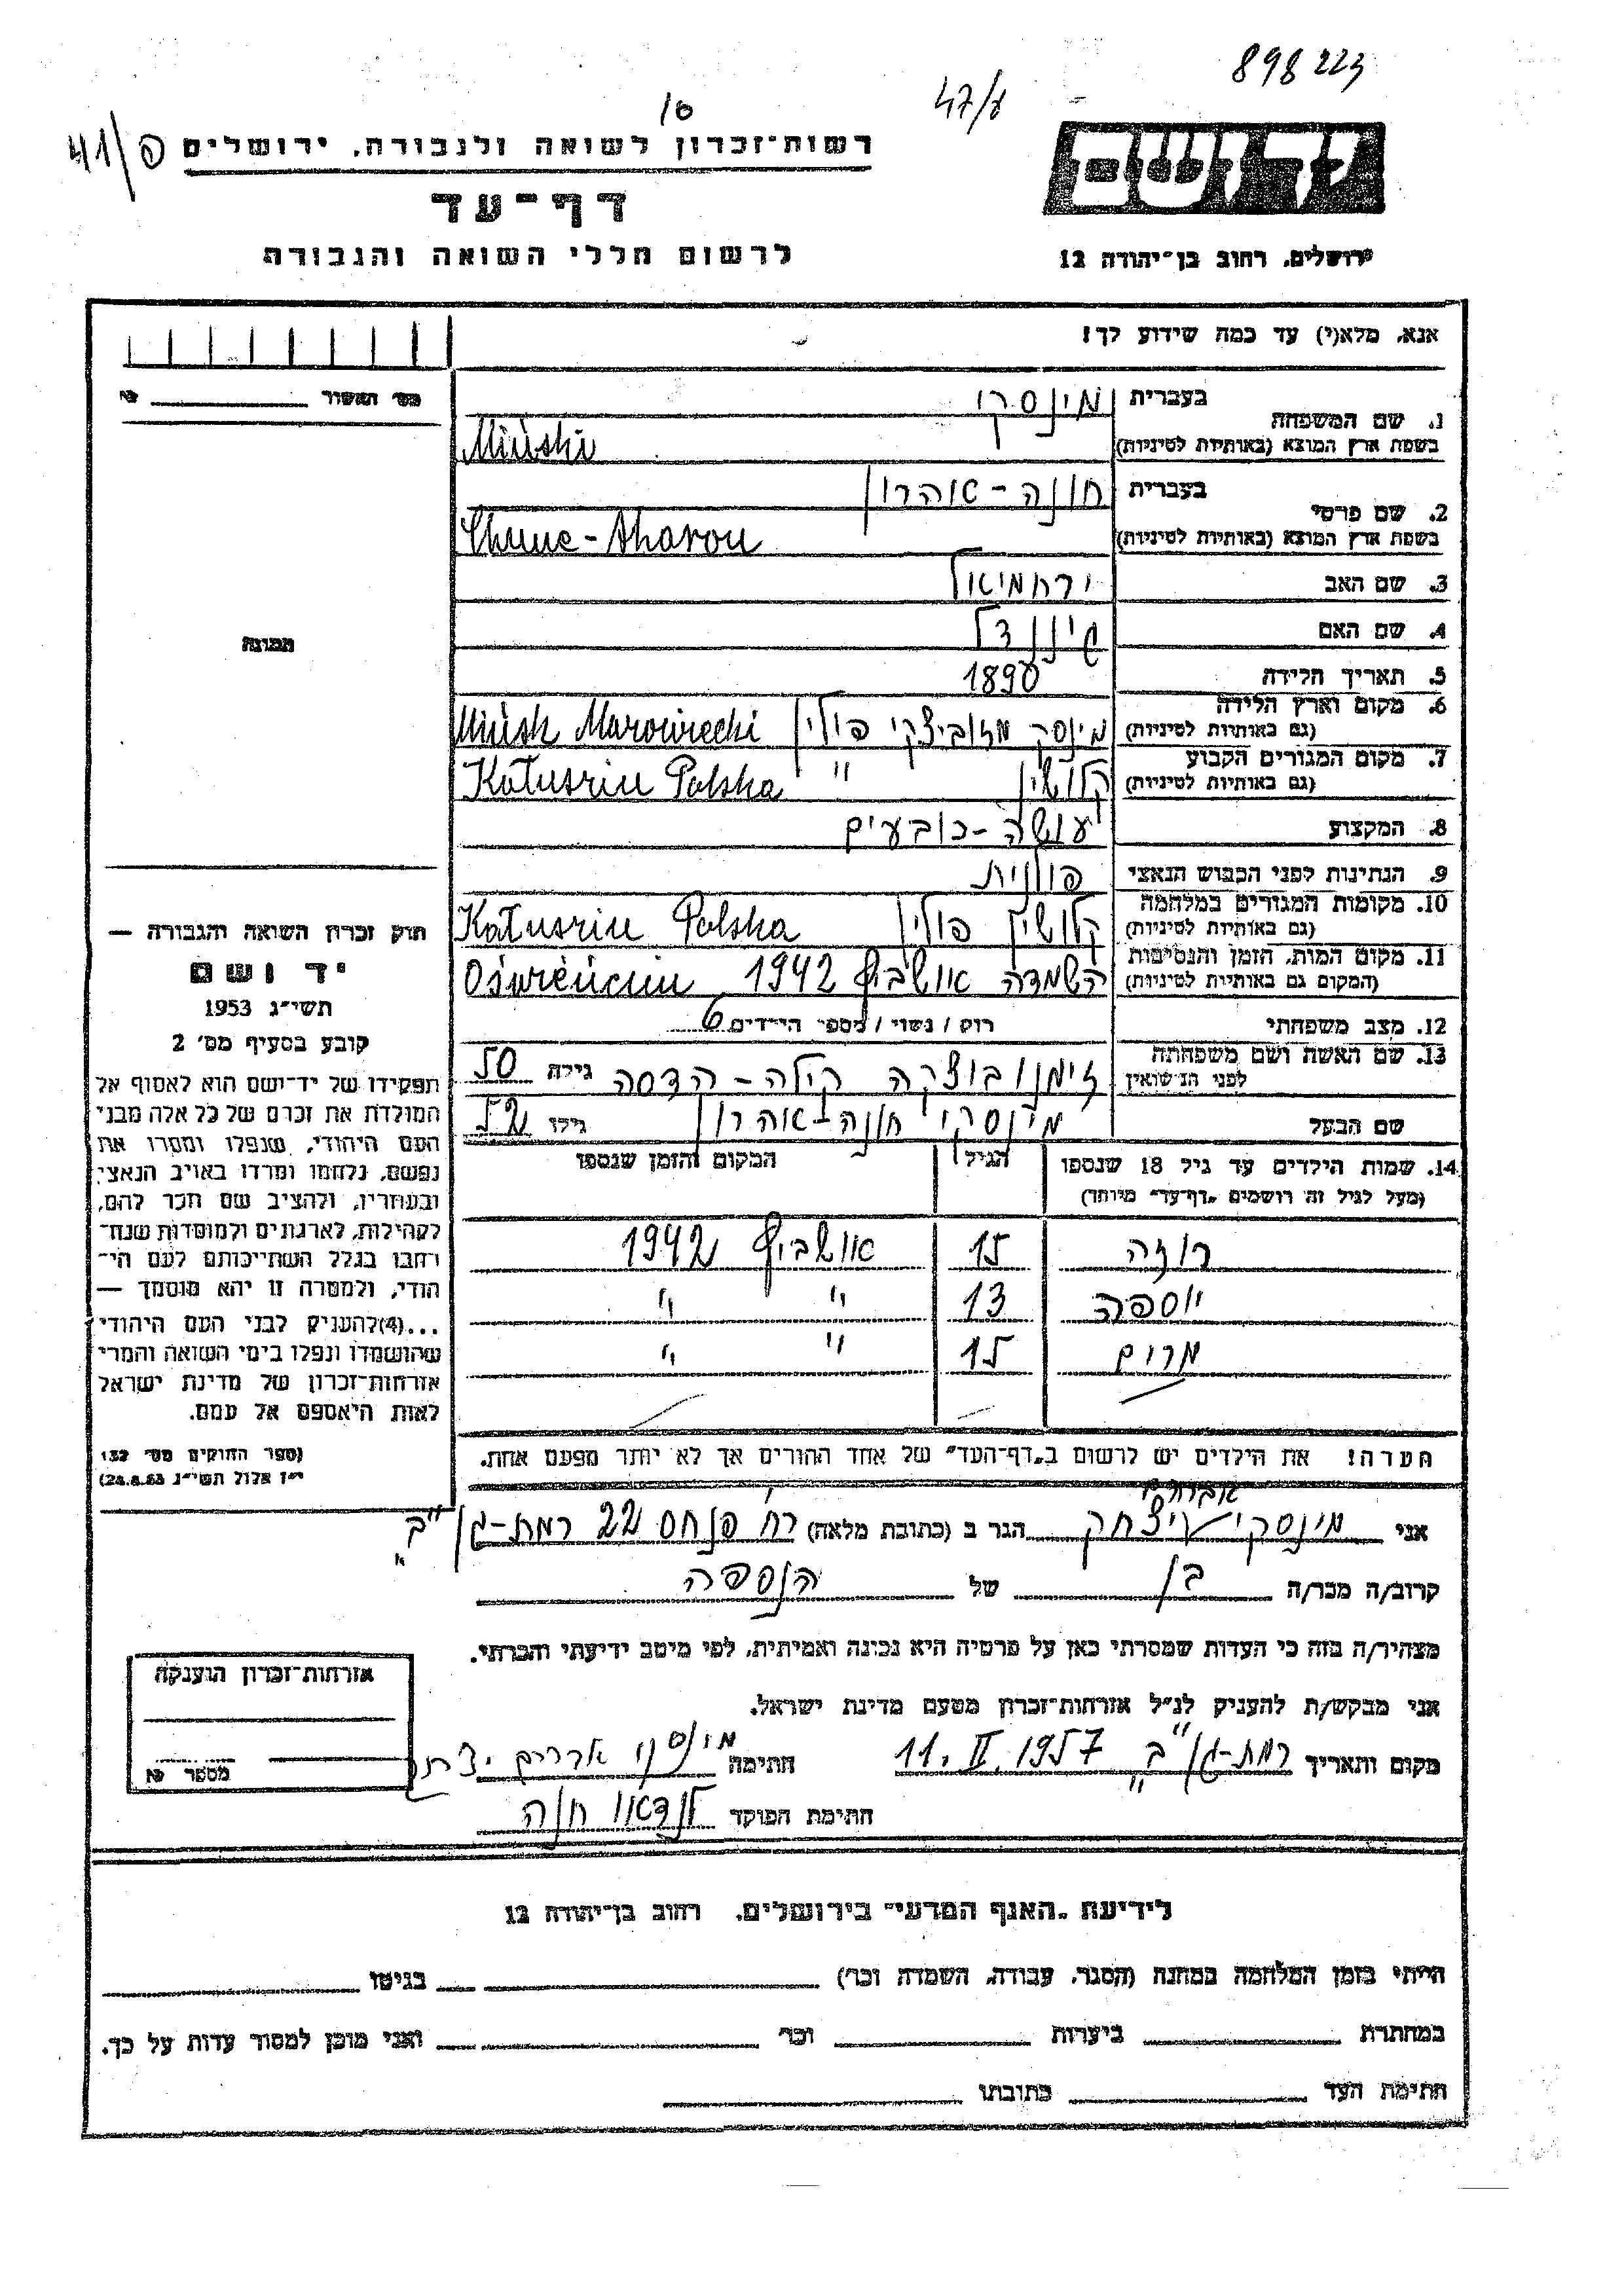 898223
47/ד
10
41/פ
רשות-זכרון לשואה ולגבורה, ירושלים
דף-עד
לרשום חללי השואה והגבורה
יד ושם
ירושלים, רחוב בן-יהודה 12
אנא, מלא(י) עד כמה שידוע לך!
מס' האשור №
1. שם המשפחה בעברית מינסקי
בשפת ארץ המוצא (באותיות לטיניות) Miński
2. שם פרטי בעברית חונה-אהרון
בשפת ארץ המוצא (באותיות לטיניות) Chune-Aharon
3. שם האב ירחמיאל
4. שם האם
5. תאריך הלידה 1890
6. מקום וארץ הלידה (גם באותיות לטיניות) מינסק מזוביצקי פולין Mińsk Mazowiecki
7. מקום המגורים הקבוע (גם באותיות לטיניות) קלושין " Kałuszin Polska
8. המקצוע עושה-כובעים
9. הנתינות לפני הכבוש הנאצי פולנית
10. מקומות המגורים במלחמה (גם באותיות לטיניות) קלושין פולין Kałuszin Polska
11. מקום המות, הזמן והנסיבות (המקום גם באותיות לטיניות) השמדה אושביץ 1942 Oświęncim
12. מצב משפחתי רוק / נשוי / מספר הילדים 6
13. שם האשה ושם משפחתה לפני הנישואין זימנובוצקה קילה-הדסה גילה 50
שם הבעל מינסקי חונה-אהרון גילו 52
14. שמות הילדים עד גיל 18 שנספו הגיל המקום והזמן שנספו
(מעל לגיל זה רושמים "דף-עד" מיוחד)
רוזה 15 אושביץ 1942
יוספה 13 " "
מרים 15 " "
הערה! את הילדים יש לרשום ב"דף-העד" של אחד ההורים אך לא יותר מפעם אחת.
תמונה
חוק זכרון השואה והגבורה —
יד ושם
תשי"ג 1953
קובע בסעיף מס' 2
תפקידו של יד-ושם הוא לאסוף אל
המולדת את זכרם של כל אלה מבני
העם היהודי, שנפלו ומסרו את
נפשם, נלחמו ומרדו באויב הנאצי
ובעוזריו, ולהציב שם וזכר להם,
לקהילות, לארגונים ולמוסדות שנח-
רבו בגלל השתייכותם לעם הי-
הודי, ולמטרה זו יהא מוסמך —
...(4) להעניק לבני העם היהודי
שהושמדו ונפלו בימי השואה והמרי
אזרחות-זכרון של מדינת ישראל
לאות היאספם אל עמם.
(ספר החוקים מס' 132
י"ז אלול תשי"ג 28.8.53)
אברהם
אני מינסקי יצחק הגר ב (כתובת מלאה) רח' פנחס 22 רמת-גן "ב"
קרוב/ה מכר/ה בן של הנספה
מצהיר/ה בזה כי העדות שמסרתי כאן על פרטיה היא נכונה ואמיתית, לפי מיטב ידיעתי והכרתי.
אני מבקש/ת להעניק לנ"ל אזרחות-זכרון מטעם מדינת ישראל.
מקום ותאריך רמת-גן "ב" 11. II. 1957 חתימה מינסקי אברהם יצחק
חתימת הפוקד לנדאו חנה
אזרחות-זכרון הוענקה
מספר №
לידיעת "האגף המדעי" בירושלים, רחוב בן-יהודה 12
הייתי בזמן המלחמה במחנה (הסגר, עבודה, השמדה וכו') בגיטו
במחתרת ביערות וכו' ואני מוכן למסור עדות על כך.
חתימת העד כתובתו